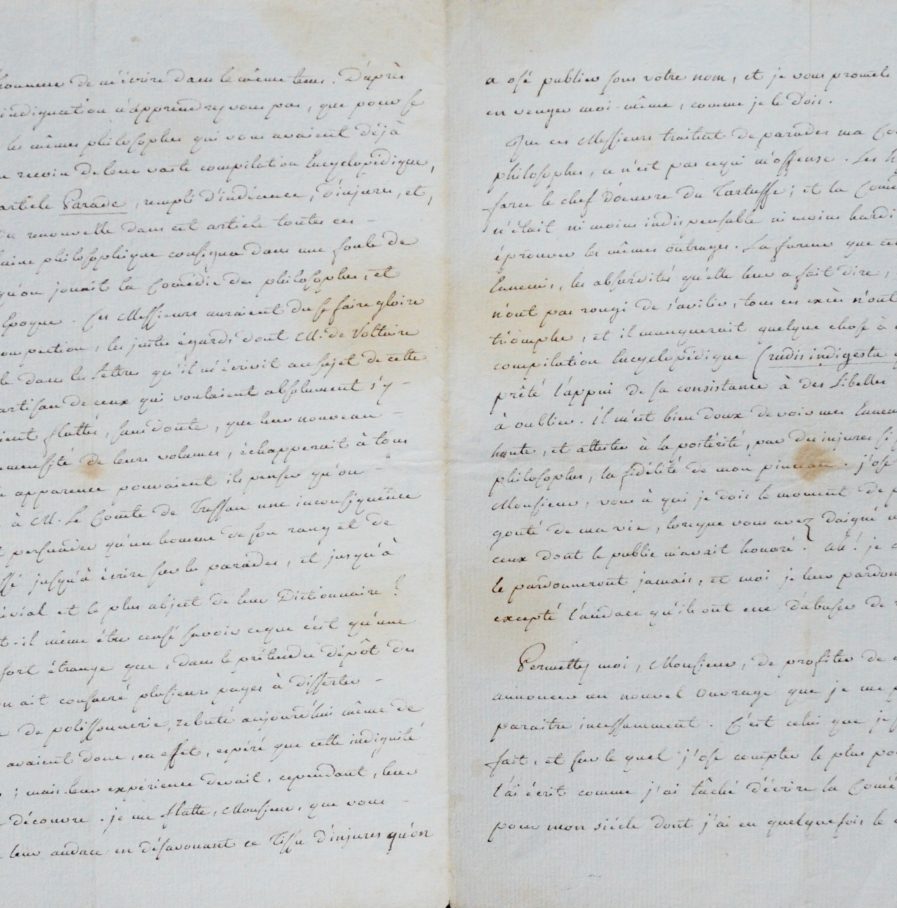 honneur de m'écrire dans le même tems. D'après
indignation n'apprendrez vous pas, que pour se
les mêmes philosophes qui vous avaient déjà
recoin de leur vaste compilation Encyclopédique,
article Parade, rempli d'indécence, d'injures, et,
renouvellé dans cet article toutes ces -
haine philosophique consignée dans une foule de
qu'on jouait la Comédie des philosophes, et
époque. Ces Messieurs auraient du se faire gloire
les justes égards dont M. de Voltaire
dans les Lettres qu'il m'écrivit au sujet de cette
partisan de ceux qui voulaient absolument s'y -
flattés, sans doute, que leur nouveau -
immensité de leurs volumes, échapperait à tous
apparence pouvaient ils penser qu'on -
à M. Le Comte de Tressan une inconséquence
persuader qu'un homme de son rang et de
jusqu'à écrire sur les parades, et jusqu'à
trivial et le plus abject de leur Dictionnaire ?
-il même être censé savoir ce que c'est qu'une
fort étrange que, dans le prétendu dépôt des
on ait consacré plusieurs pages à disserter -
de polissonnerie, rebuté aujourd'hui même de
avaient donc, en effet, espéré que cette indignité
; mais leur expérience devait, cependant, leur
découvre. je me flatte, Monsieur, que vous -
leur audace en désavouant ce Tissu d'injures qu'on
a osé publier sous votre nom, et je vous promets
en venger moi-même, comme je le dois.
Que ces Messieurs traitent de parades ma Co
philosophes, ce n'est pas ce qui m'offense. Les
farce le chef d'oeuvre du Tartuffe; et la Comé
n'était ni moins indispensable ni moins hardi
éprouver les mêmes outrages. La fureur que ce
Ennemis, les absurdités qu'elle leur a fait dire,
n'ont pas rougi de s'avilir, tous ces excès n'ont
triomphe, et il manquerait quelque chose à
compilation Encyclopédique (rudis indigesta
prêté l'appui de sa consistance à des Libelles
à oublier. Il m'est bien doux de voir mes Ennem
honte, et attester à la postérité, par des injures si
philosophes, la fidélité de mon pinceau. j'ose
Monsieur, vous à qui je dois le moment de p
gouté de ma vie, lorsque vous avez daigné
ceux dont le public m'avait honoré. Ah! je
le pardonneront jamais, et moi je leur pardon
excepté l'audace qu'ils ont eue d'abuser de
Permettez moi, Monsieur, de profiter de
annoncer un nouvel ouvrage que je me
paraitre incessamment. C'est celui que j'
fait, et sur le quel j'ose compter le plus po
l'ai écrit comme j'ai tâché d'écrire la Comé
pour mon siècle dont j'ai eu quelquefois le